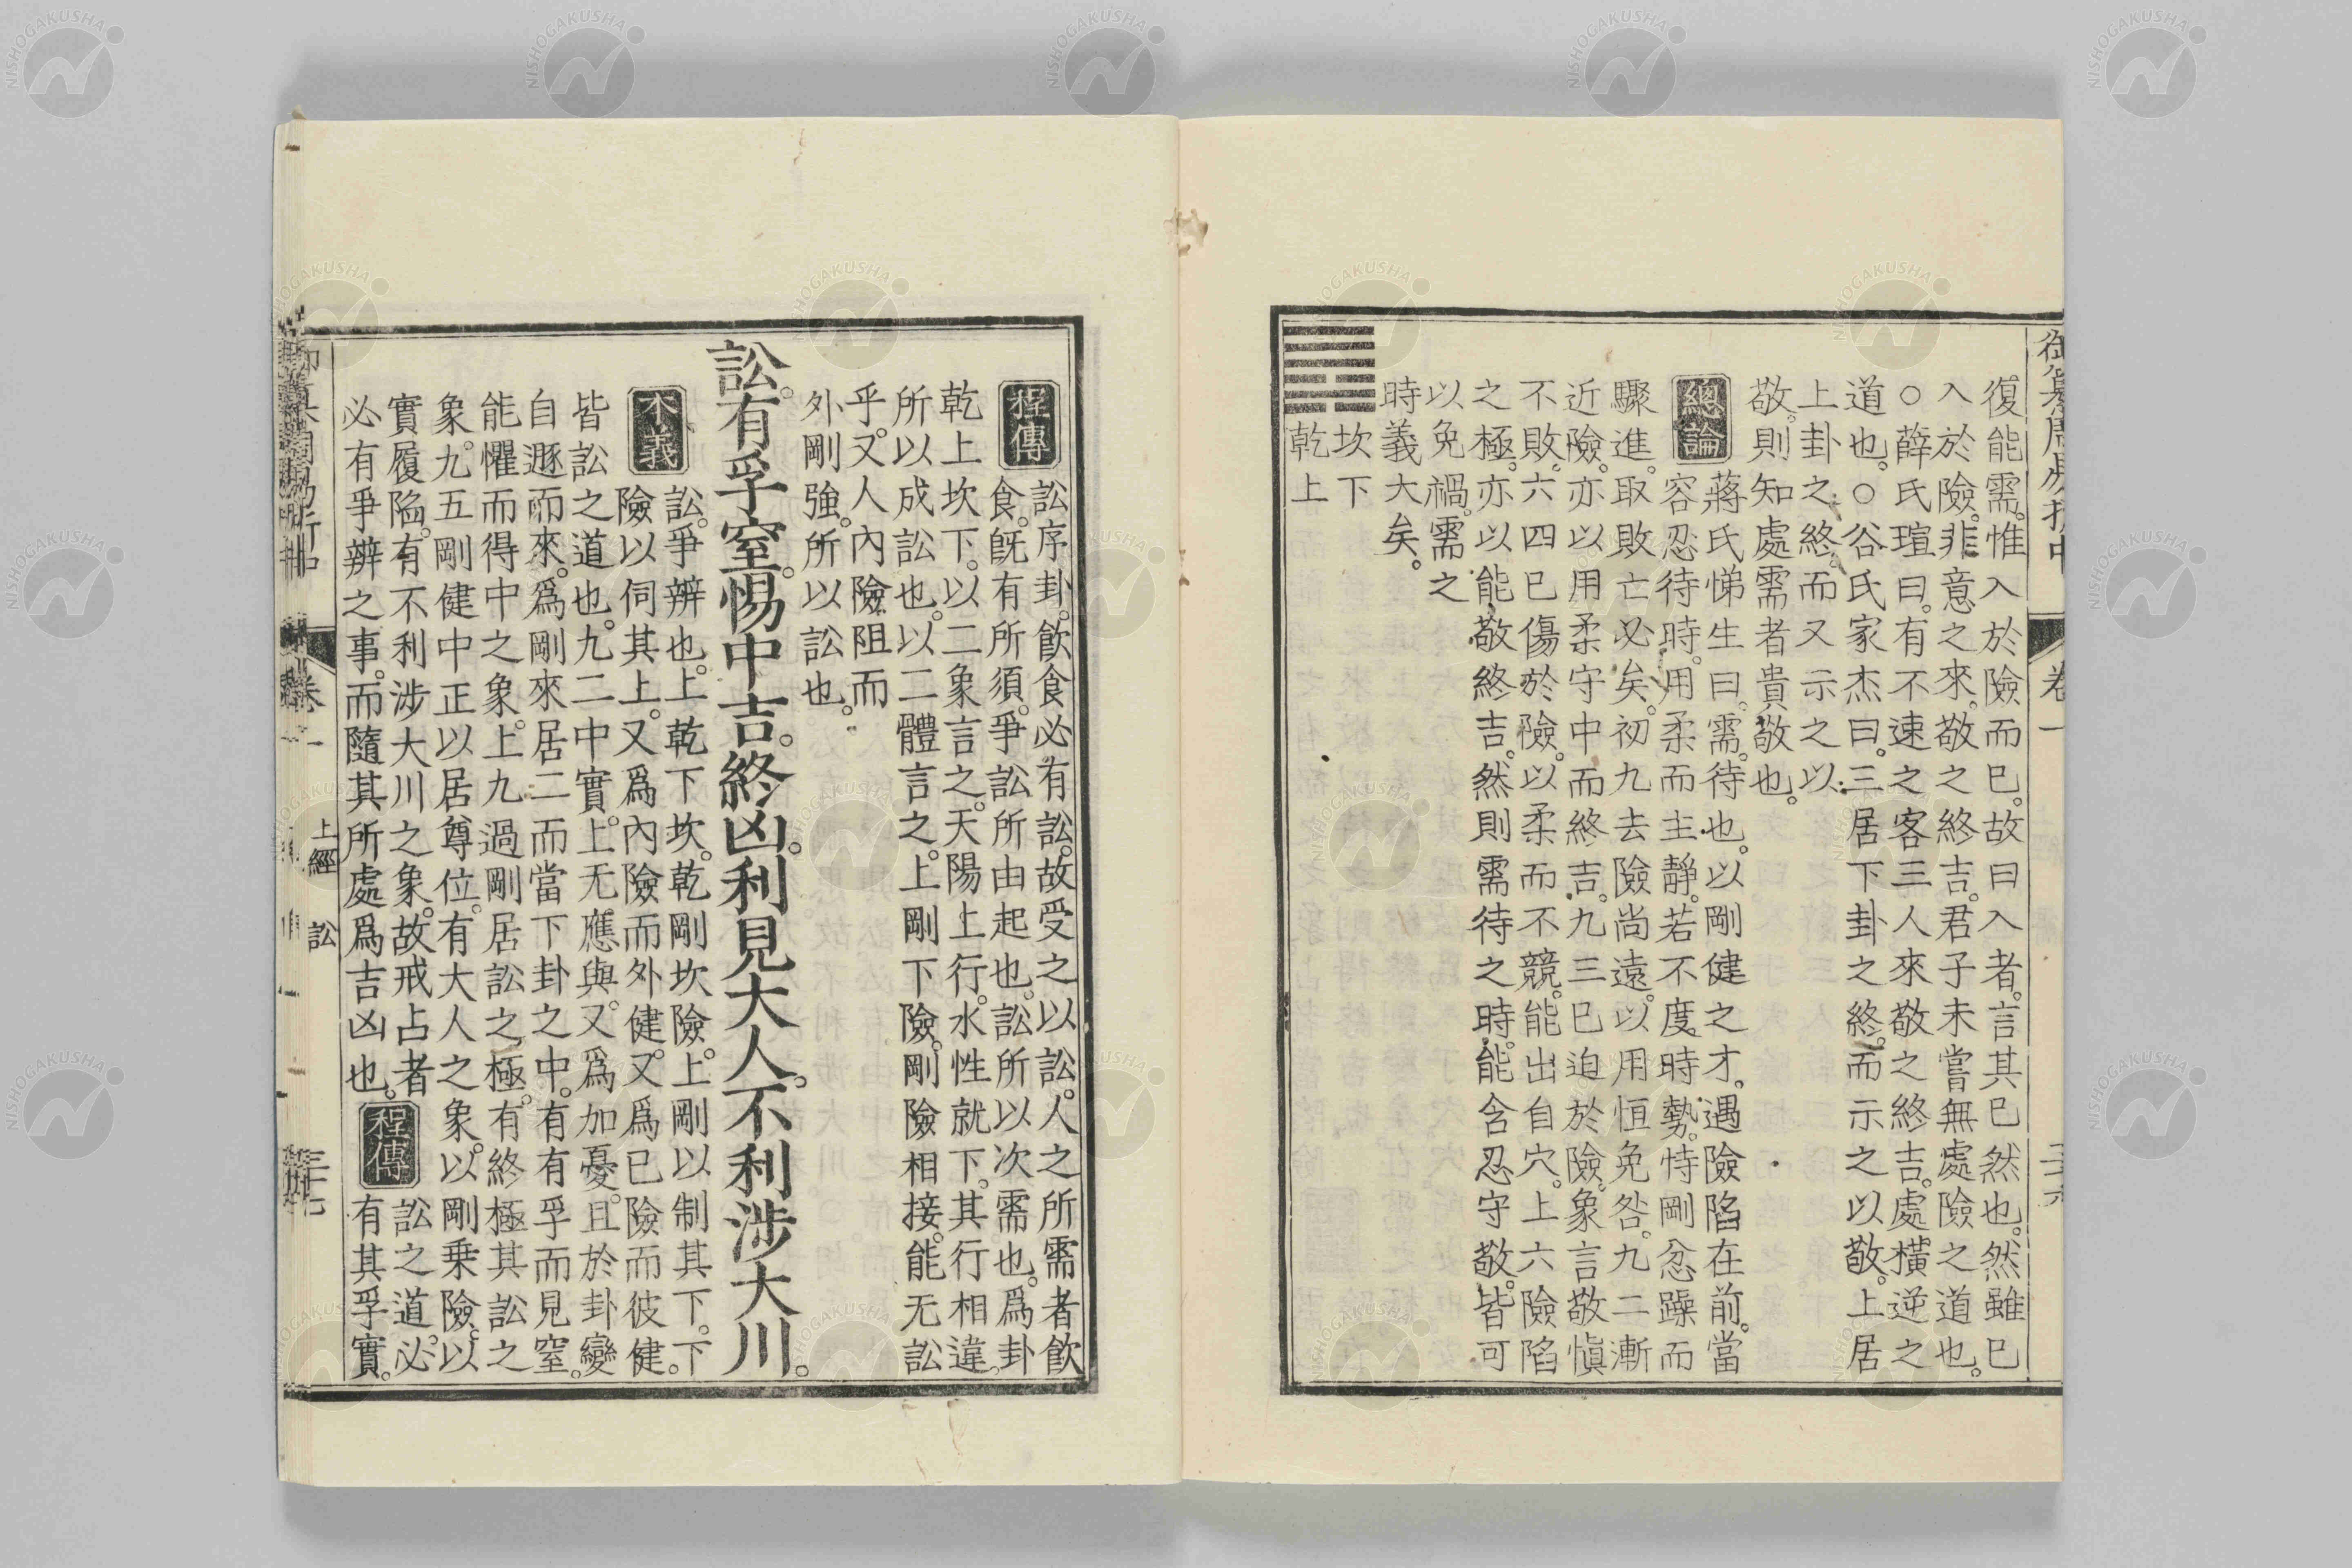 御纂周易折中 卷一
復能需。惟入於險而已。故曰入者。言其已然也。然雖已
入於險。非意之來。敬之終吉。君子未嘗無處險之道也。
○薛氏瑄曰。有不速之客三人來敬之終吉。處橫逆之
道也。○谷氏家杰曰。三居下卦之終。而示之以敬。上居
上卦之終。而又示之以
敬。則知處需者貴敬也。
總論 蔣氏悌生曰。需。待也。以剛健之才。遇險陷在前。當
容忍待時。用柔而主靜。若不度時勢。恃剛忿躁而
驟進。取敗亡必矣。初九去險尚遠。以用恒免咎。九二漸
近險。亦以用柔守中而終吉。九三已迫於險。象言敬慎
不敗。六四已傷於險。以柔而不競。能出自穴。上六險陷
之極。亦以能敬終吉。然則需待之時。能含忍守敬。皆可
以免禍。需之
時義大矣。
坎下
乾上
程傳 訟序卦。飲食必有訟。故受之以訟。人之所需者飲
食。旣有所須。爭訟所由起也。訟所以次需也。爲卦
乾上坎下。以二象言之。天陽上行。水性就下。其行相違。
所以成訟也。以二體言之。上剛下險。剛險相接。能无訟
乎。又人內險阻而
外剛強。所以訟也。
訟。有孚窒。惕中吉。終凶。利見大人。不利涉大川。
本義 訟。爭辨也。上乾下坎。乾剛坎險。上剛以制其下。下
險以伺其上。又爲內險而外健。又爲已險而彼健。
皆訟之道也。九二中實。上无應與。又爲加憂。且於卦變
自遯而來。爲剛來居二而當下卦之中。有有孚而見窒。
能懼而得中之象。上九過剛居訟之極。有終極其訟之
象。九五剛健中正以居尊位。有大人之象。以剛乗險。以
實履陷。有不利涉大川之象。故戒占者
必有爭辨之事。而隨其所處爲吉凶也。
程傳 訟之道。必
有其孚實。
卷一 上經 訟 三十七
NISHOGAKUSHA